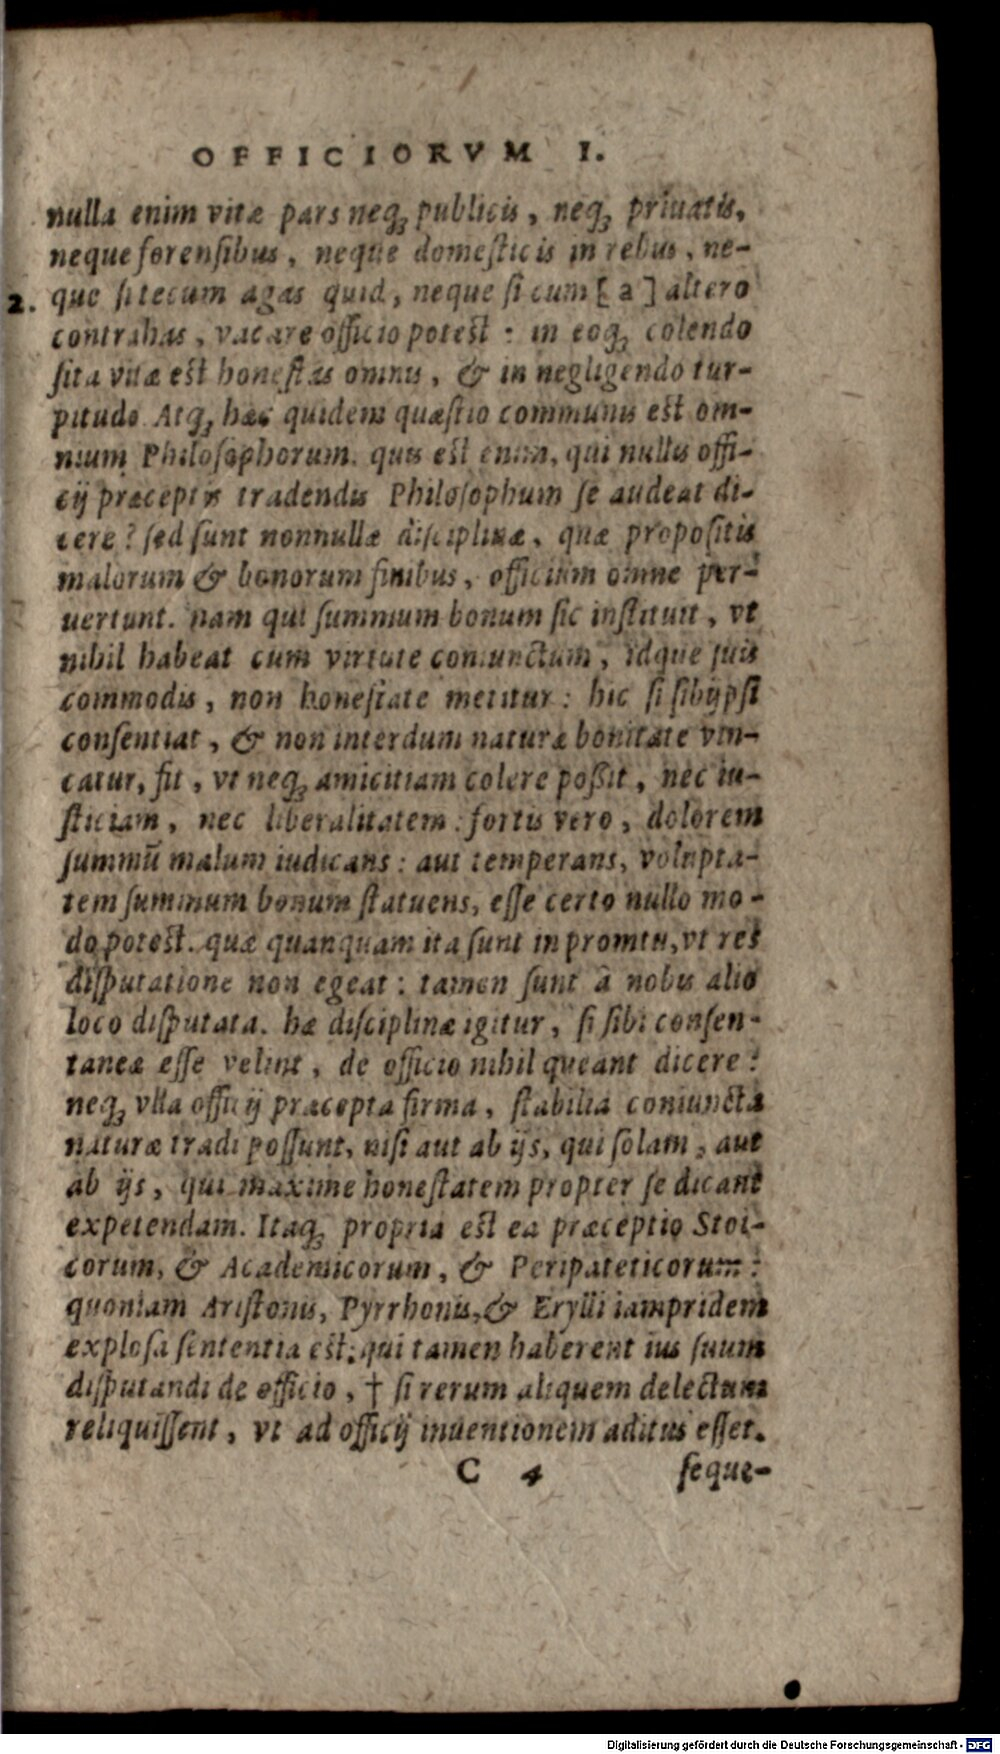 OFFICIORVM I.
nulla enim vitæ pars neq; publicis, neq; priuatis,
neque forensibus, neque domesticis in rebus, ne-
2. que si tecum agas quid, neque si cum [a] altero
contrahas, vacare officio potest: in eoq; colendo
sita vitæ est honestas omnis, & in negligendo tur-
pitudo. Atq; hæc quidem quæstio communis est om-
nium Philosophorum. quis est enim, qui nullis offi-
cij præceptis tradendis Philosophum se audeat di-
cere? sed sunt nonnullæ disciplinæ, quæ propositis
malorum & bonorum finibus, officium omne per-
uertunt. nam qui summum bonum sic instituit, vt
nihil habeat cum virtute coniunctum, idque suis
commodis, non honestate metitur: hic si sibijpsi
consentiat, & non interdum naturæ bonitate vin-
catur, fit, vt neq; amicitiam colere poßit, nec iu-
sticiam, nec liberalitatem: fortis vero, dolorem
summū malum iudicans: aut temperans, volupta-
tem summum bonum statuens, esse certo nullo mo-
do potest. quæ quanquam ita sunt in promtu, vt res
disputatione non egeat: tamen sunt à nobis alio
loco disputata. hæ disciplinæ igitur, si sibi consen-
taneæ esse velint, de officio nihil queant dicere:
neq; vlla officij præcepta firma, stabilia coniuncta
naturæ tradi possunt, nisi aut ab ijs, qui solam, aut
ab ijs, qui maxime honestatem propter se dicant
expetendam. Itaq; propria est ea præceptio Stoi-
corum, & Academicorum, & Peripateticorum:
quoniam Aristonis, Pyrrhonis, & Erylli iampridem
explosa sententia est: qui tamen haberent ius suum
disputandi de officio, † si rerum aliquem delectum
reliquissent, vt ad officij inuentionem aditus esset.
C 4 seque-
Digitalisierung gefördert durch die Deutsche Forschungsgemeinschaft - DFG